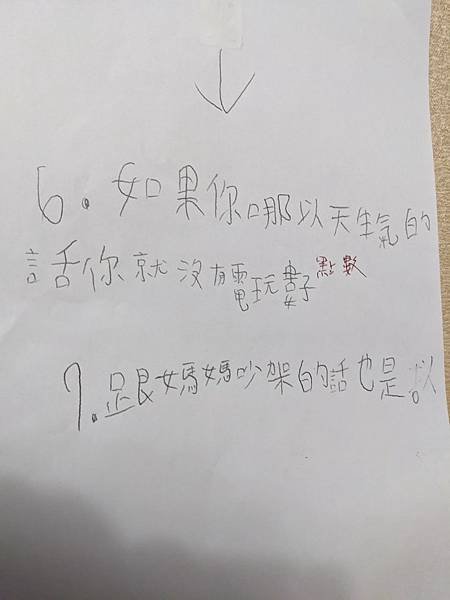 6. 如果你哪以天生氣的
話你就沒有電玩 點數
7. 跟媽媽吵架的話也是。